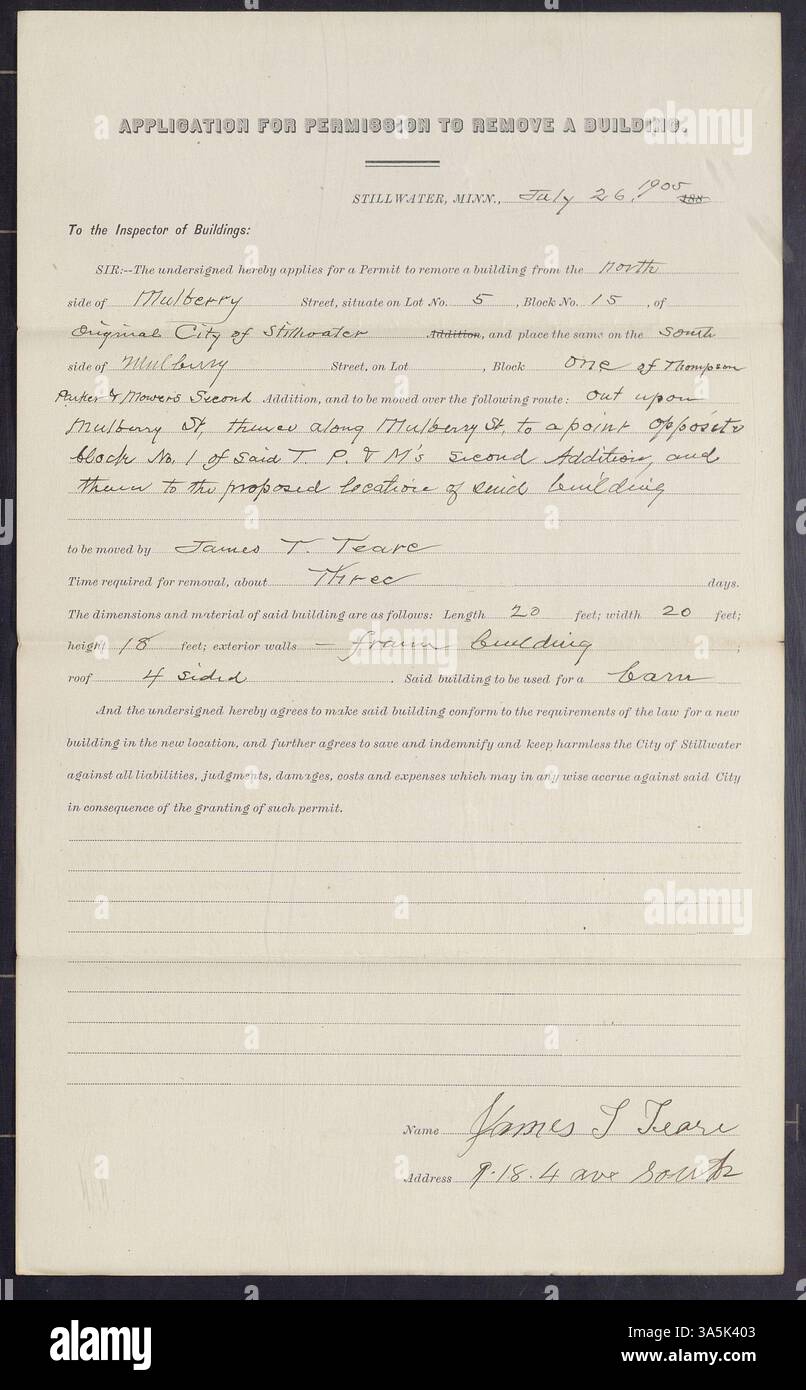 APPLICATION FOR PERMISSION TO REMOVE A BUILDING.
STILLWATER, MINN., July 26, 1905 188
To the Inspector of Buildings:
SIR:--The undersigned hereby applies for a Permit to remove a building from the north
side of Mulberry Street, situate on Lot No. 5, Block No. 15, of
Original City of Stillwater Addition, and place the same on the South
side of Mulberry Street, on Lot , Block One of Thompson
Parker & Mowers Second Addition, and to be moved over the following route: out upon
Mulberry St, thence along Mulberry St, to a point opposite
block No. 1 of said T. P. & M's Second Addition, and
then to the proposed location of said building
to be moved by James T. Teare
Time required for removal, about Three days.
The dimensions and material of said building are as follows: Length 20 feet; width 20 feet;
height 18 feet; exterior walls — frame building ;
roof 4 sided . Said building to be used for a barn
And the undersigned hereby agrees to make said building conform to the requirements of the law for a new
building in the new location, and further agrees to save and indemnify and keep harmless the City of Stillwater
against all liabilities, judgments, damages, costs and expenses which may in any wise accrue against said City
in consequence of the granting of such permit.
Name James T Teare
Address 918. 4 ave South
alamy
Image ID: 3A5K403
www.alamy.com